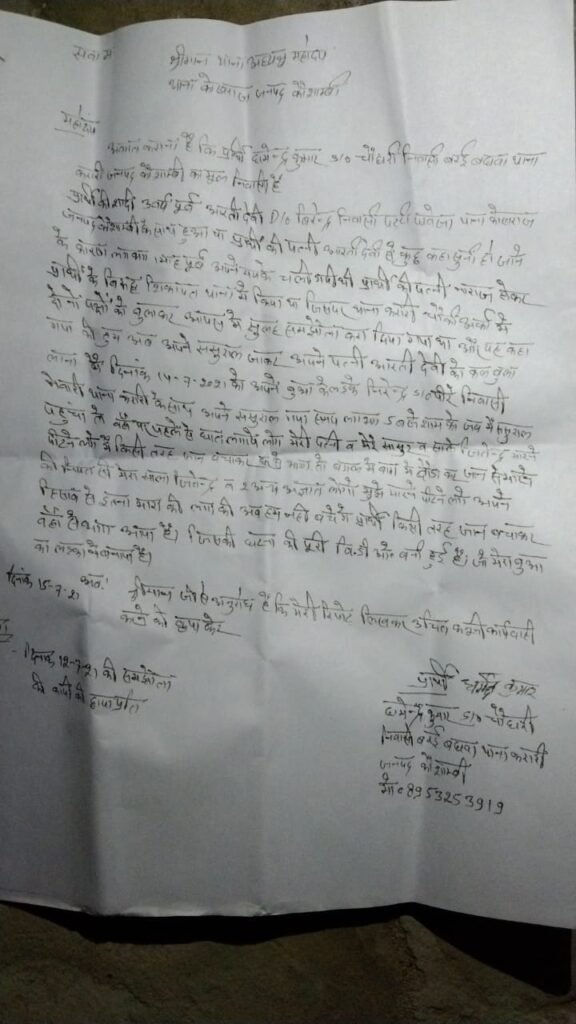 सेवा में
श्रीमान थाना अध्यक्ष महोदय
थाना कोखराज जनपद कौशाम्बी
महोदय
अवगत कराना है कि प्रार्थी धर्मेन्द्र कुमार S/o चौधरी निवासी बरई बधवा थाना
करारी जनपद कौशाम्बी का मूल निवासी है
प्रार्थी की शादी वर्ष पूर्व आरती देवी D/o विरेन्द्र निवासी पट्टी थाना कोखराज
जनपद कौशाम्बी के साथ हुआ था प्रार्थी की पत्नी आरती देवी से कुछ कहा सुनी हो जाने
के कारण लगभग माह पूर्व अपने मायके चली गयी थी प्रार्थी की पत्नी नाराज होकर
प्रार्थी के विरुद्ध शिकायत थाना में किया था जिसपर थाना करारी चौकी में
दोनो पक्षों को बुलाकर आपस में सुलह समझौता करा दिया गया था और यह कहा
गया की तुम अब अपने ससुराल जाकर अपने पत्नी आरती देवी को बुला
लाना है दिनांक 14-7-2021 को अपने बुआ के लडके विरेन्द्र निवासी
थाना करारी के साथ अपने ससुराल गया समय लगभग 5 बजे शाम के जब मैं ससुराल
पहुचा तो वहाँ पर पहले से घात लगाये लोग मेरी पत्नी व मेरे ससुर व साले जितेन्द्र मारने
पीटने लगे मैं किसी तरह जान बचाकर भागा तो बाग में जान से मारने
की नियत से मेरा साला जितेन्द्र व 2 अन्य अज्ञात लोगो मुझे मारने पीटने लगे अपने
हिसाब से इतना मारा की लगा की अब हम नही बचेगे प्रार्थी किसी तरह जान बचाकर
वहाँ से भागा आया है। जिसकी घटना की पूरी वि.डी ओ बनी हुई है। जो मेरा बुआ
का लडका बनाया है।
दिनांक 15-7-21 अतः श्रीमान जी से अनुरोध है कि मेरी रिपोर्ट लिखकर उचित कानूनी कार्यवाही
करने की कृपा करे
दिनांक 12-7-21 की समझौता
की कापी की छायाप्रति
प्रार्थी धर्मेन्द्र कुमार
धर्मेन्द्र कुमार S/o चौधरी
निवासी बरई बधवा थाना करारी
जनपद कौशाम्बी
मो० 8953253919